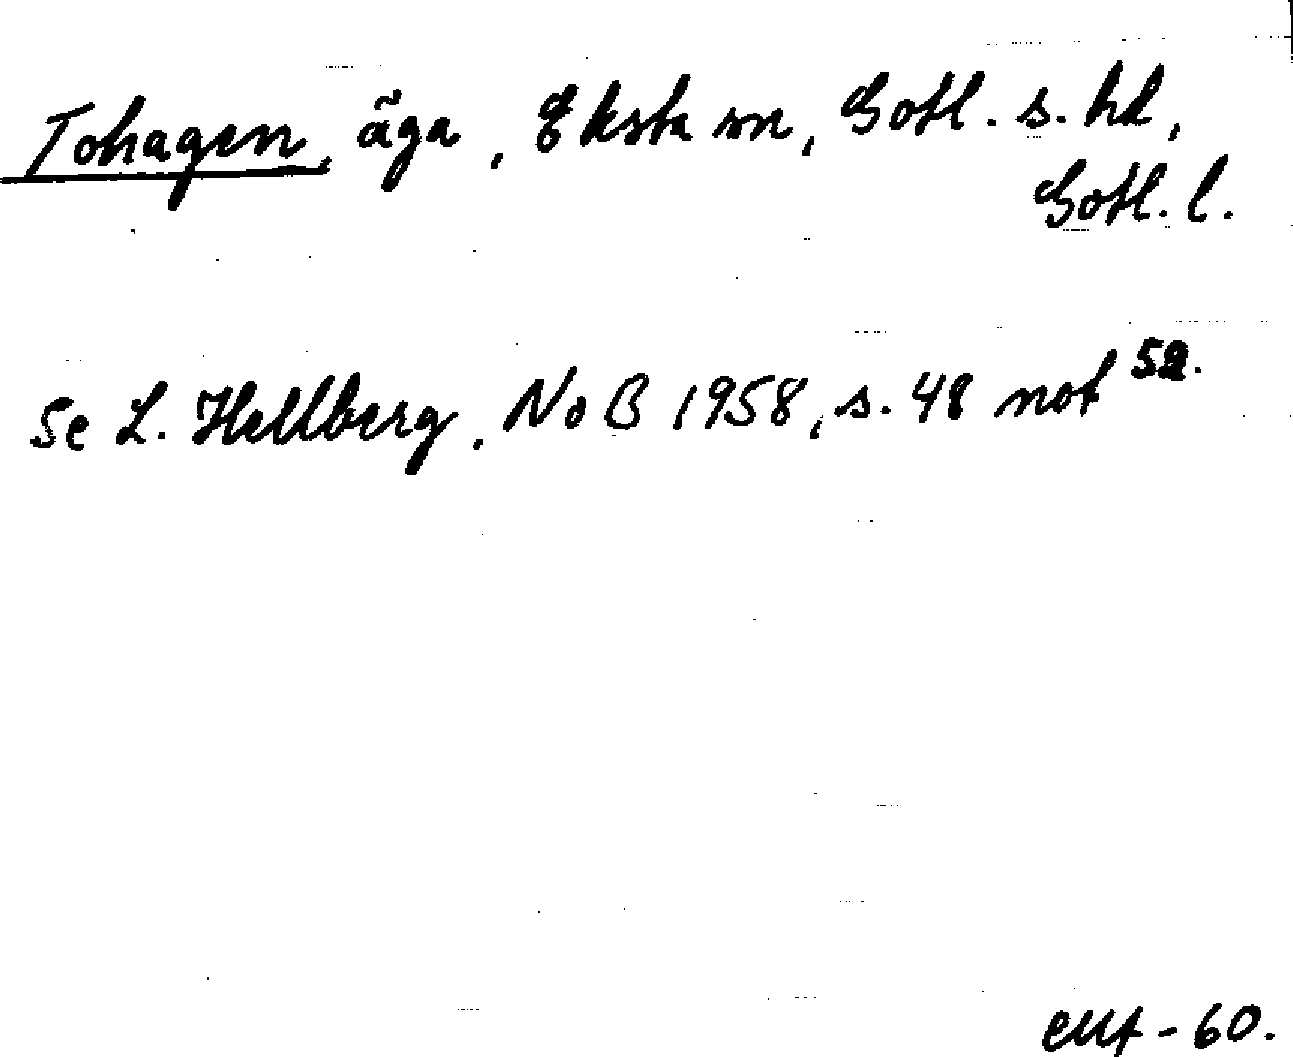 Tohagen, äga, Eksta sn, Gotl. s. hd,
Gotl. l.
Se L. Hellberg, NoB 1958, s. 48 not 52.